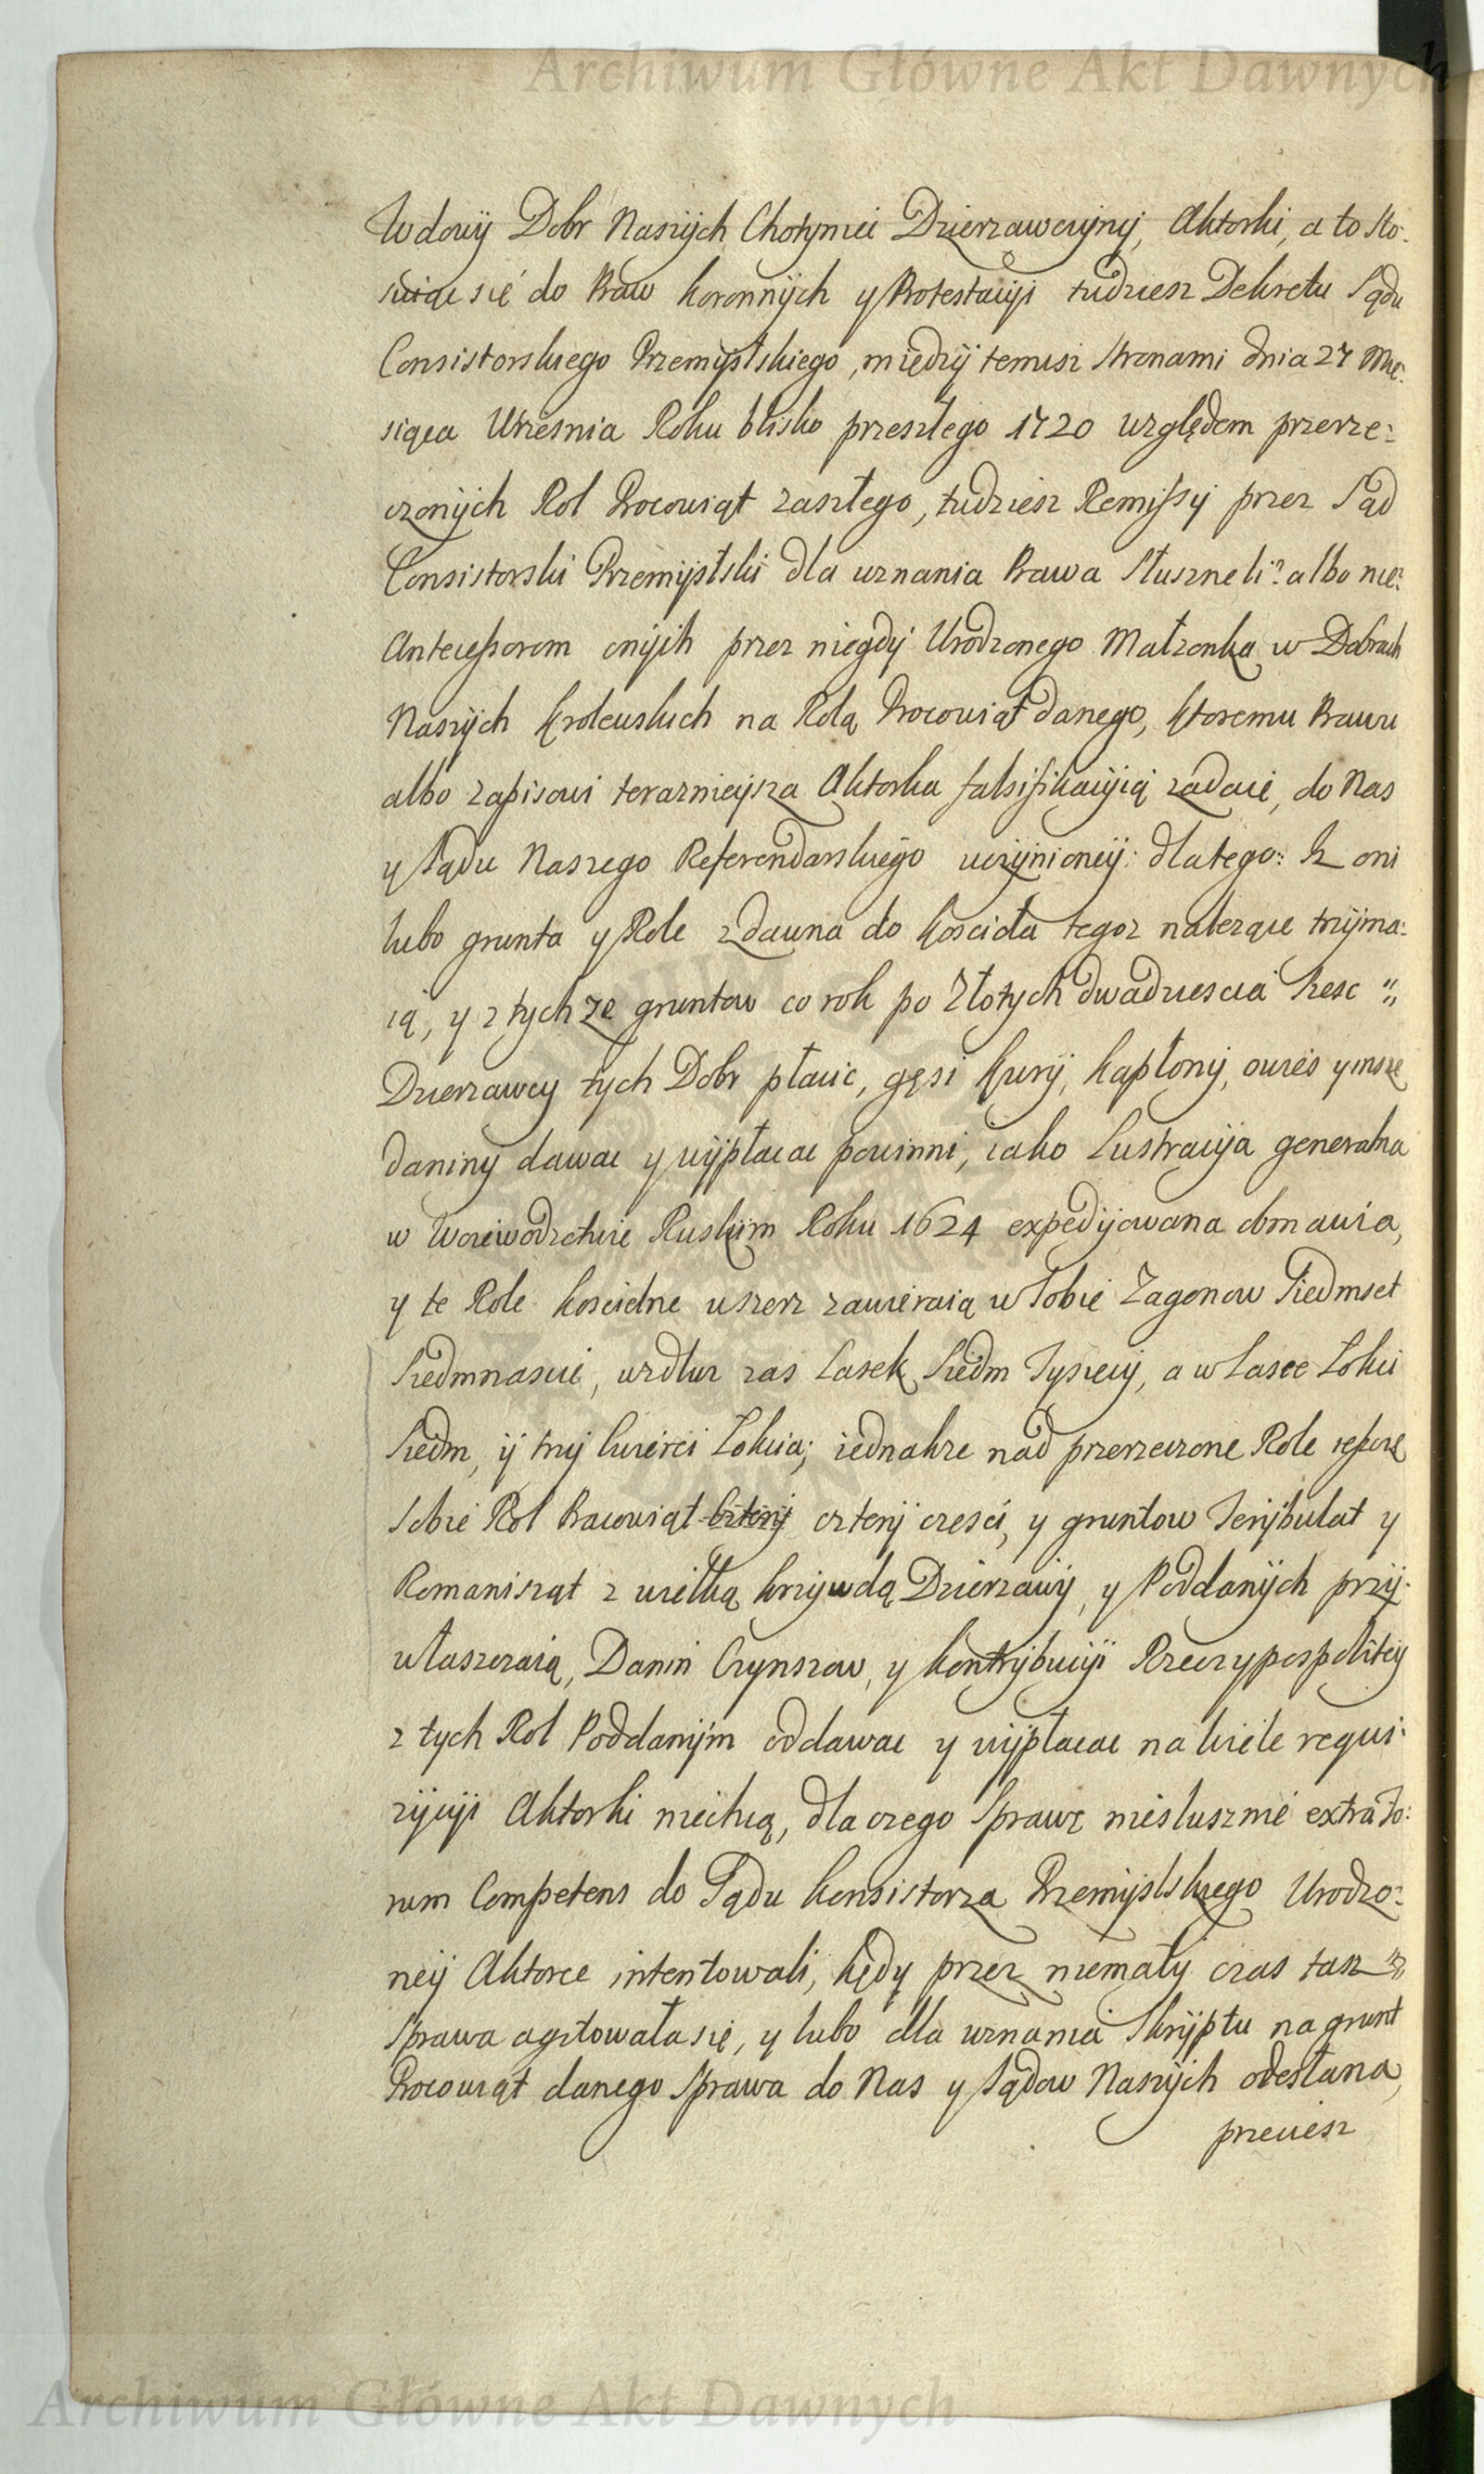 Archiwum Główne Akt Dawnych
Wdowÿ Dobr Naszÿch Chotyniei Dzierzawczyny, Aktorki, a to Sto-
suiąc się do Praw koronnÿch y Protestacÿi tudziesz Dekretu Sądu
Consistorskiego Przemÿslskiego, międzÿ temisz stronami dnia 27 Mie:
siąca Wrzesnia Roku blisko przeszłego 1720 względem przerze:
czonÿch Rol Procowiąt zaszłego, tudziesz Remissÿ przez Sąd
Consistorski Przemÿslski dla uznania Prawa Słuszneli? albo nie?
Antecessorom onÿch przez niegdÿ Urodzonego Małzonka w Dobrach
Naszÿch Krolewskich na Rolą Procowiąt danego, ktoremu Prawu
albo zapisowi terazniejsza Aktorka falsifikacÿią zadaie, do Nas
y Sądu Naszego Referendarskiego uczÿnioneÿ: dlatego: Iz oni
lubo grunta y Role zdawna do koscioła tegoz nalezące trzÿma:
ią, y z tych ze gruntow co rok po Złotych dwadziescia Szesc „
Dzierzawcy tych Dobr płacic, gęsi kurÿ, kapłony, owies y insze
daniny dawac y wÿpłacac powinni, iako Lustracÿa generalna
w Woiewodztwie Ruskim Roku 1624 expedÿjowana obmawia,
y te Role koscielne wszerz zawieraią w Sobie Zagonow Siedmset
Siedmnascie, wzdłuz zas Lasek Siedm Tysięcÿ, a w Lasce Łokci
Siedm, ÿ trzÿ cwierci Łokcia; iednakze nad przerzeczone Role
Sobie Rol Pracowiąt czterÿ czterÿ czesci, y gruntow Serÿbulat y
Romanisząt z wielką krzywdą Dzierzawÿ, y Poddanÿch przÿ-
właszczaią, Danin Czynszow, y kontrÿbucÿi Rzeczypospoliteÿ
z tych Rol Poddanÿm oddawac y wÿpłacac na wiele requi-
zÿcÿi Aktorki niechcą, dla czego Sprawę niesłusznie extra fo:
rum Competens do Sądu konsistorza Przemÿslskiego Urodzo:
neÿ Aktorce intentowali, kędy przez niemały czas tasz „
Sprawa agitowała się, y lubo dla uznania Skrÿptu na grunt
Procowiąt danego Sprawa do Nas y Sądow Naszÿch odesłana,
przeciesz
Archiwum Główne Akt Dawnych